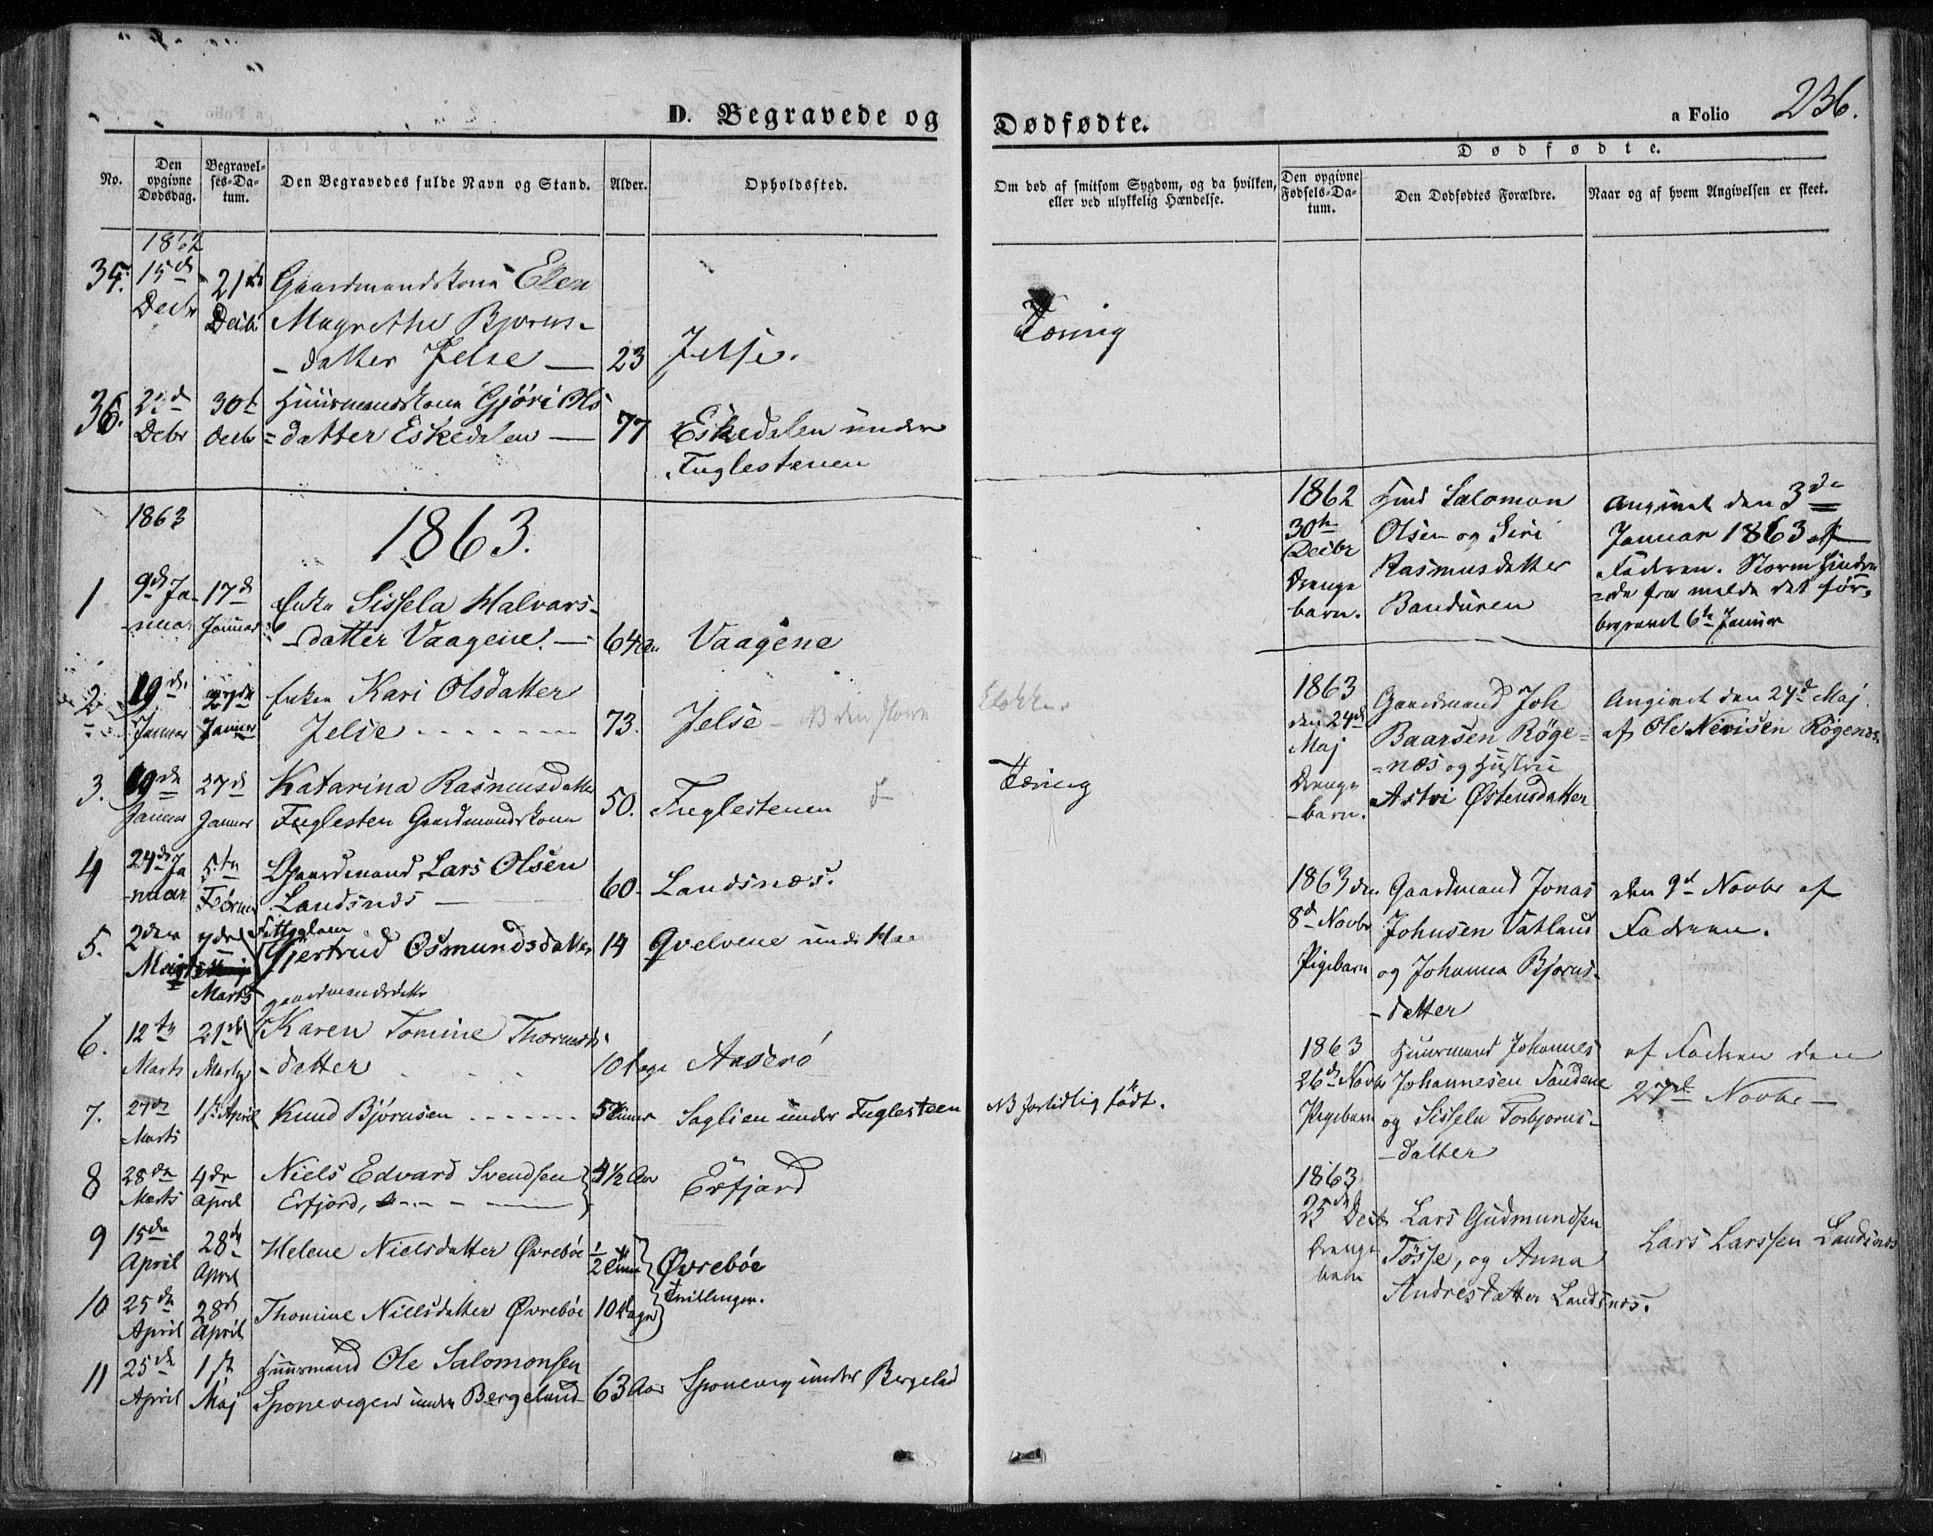 236.
D. Begravede og Dødfødte.
a Folio
No.
Den opgivne Dødsdag.
Begravelses-Datum.
Den Begravedes fulde Navn og Stand.
Alder.
Opholdssted.
Om død af smitsom Sygdom, og da hvilken, eller ved ulykkelig Hændelse.
Dødfødte.
Den opgivne Fødsels-Datum.
Den Dødfødtes Forældre.
Naar og af hvem Angivelsen er skeet.
1862
35. 15de Decbr 21de Decbr Gaardmandskone Elen
Magrethe Bjorns-
-datter Jelse — 23 Jelse. Tæring
36. Decbr 30te Decbr Huusmandskone Gjøri Ols
=datter Eskedalen — 77 Eskedalen under
Fuglestenen
1863 1863.
1 9de Ja-nuar 17de Januar Enke Sissela Halvars-
-datter Vaagene. — 64 Vaagene
2 19de Januar 27de Januar Enken Kari Olsdatter
Jelse 73. Jelse
3. 19de Januar 27de Januar Katarina Rasmusdatter
Fuglesten Gaardmandskone 50. Fuglestenen Tæring
4 24de Ja-nuar 5te Gaardmand Lars Olsen
Landsnæs 60 Landsnæs.
5. 2den 7de Marts
Gjertrud Osmundsdatter 14 Qvelvene under
gaardmandsdatter
6. 12te Marts 21de Marts Karen Tomine
-datter 10 Dage
7. 27de Marts 1st April Knud Bjørnsen 5 Timer Saglien under Fuglesteen NB fortidlig født.
8 28de Marts 4de April Niels Edvard Svendsen
Erfjord, 4½ Aar Erfjord
9 15de April 28de April Helene Nielsdatter Øvrebøe ½ Time Øvrebøe
Tvillinger.
10 25de April 28de April Thomine Nielsdatter Øvrebøe 10 Dage
11 25de April 1st Maj Huusmand Ole Salomonsen
Sponevigen under Bergeland 63 Aar Sponevig under
1862
30te Decbr
Drenge
barn.
Salomon
Olsen og Siri
Rasmusdatter
Banduren
Angivet den 3de
Januar 1863 af
Faderen. Storm hindre
=de fra melde det før.
begravet 6te Januar
1863
den 24de
Maj
Drenge
-barn.
Gaardmand Joh
Baarsen Røge-
=næs og Hustru
Astri Østensdatter
Angivet den 24de Maj
af Ole Røgenæs
1863 den
8de Novbr
Pigebarn
Gaardmand Jonas
Johnsen Vatland
og Johanna Bjorns-
-datter
den 9de Novbr af
Faderen.
1863
26de Novbr
Pigebarn
Huusmand Johannes
Johannesen Sandene
og Sissela Torbjorns-
-datter
af Faderen den
27de Novbr —
1863
25de Decbr
Drenge
barn
Lars Gudmundsen
Tøsse, og Anna
Andresdatter Landsnæs.
Lars Larssen Landsnæs